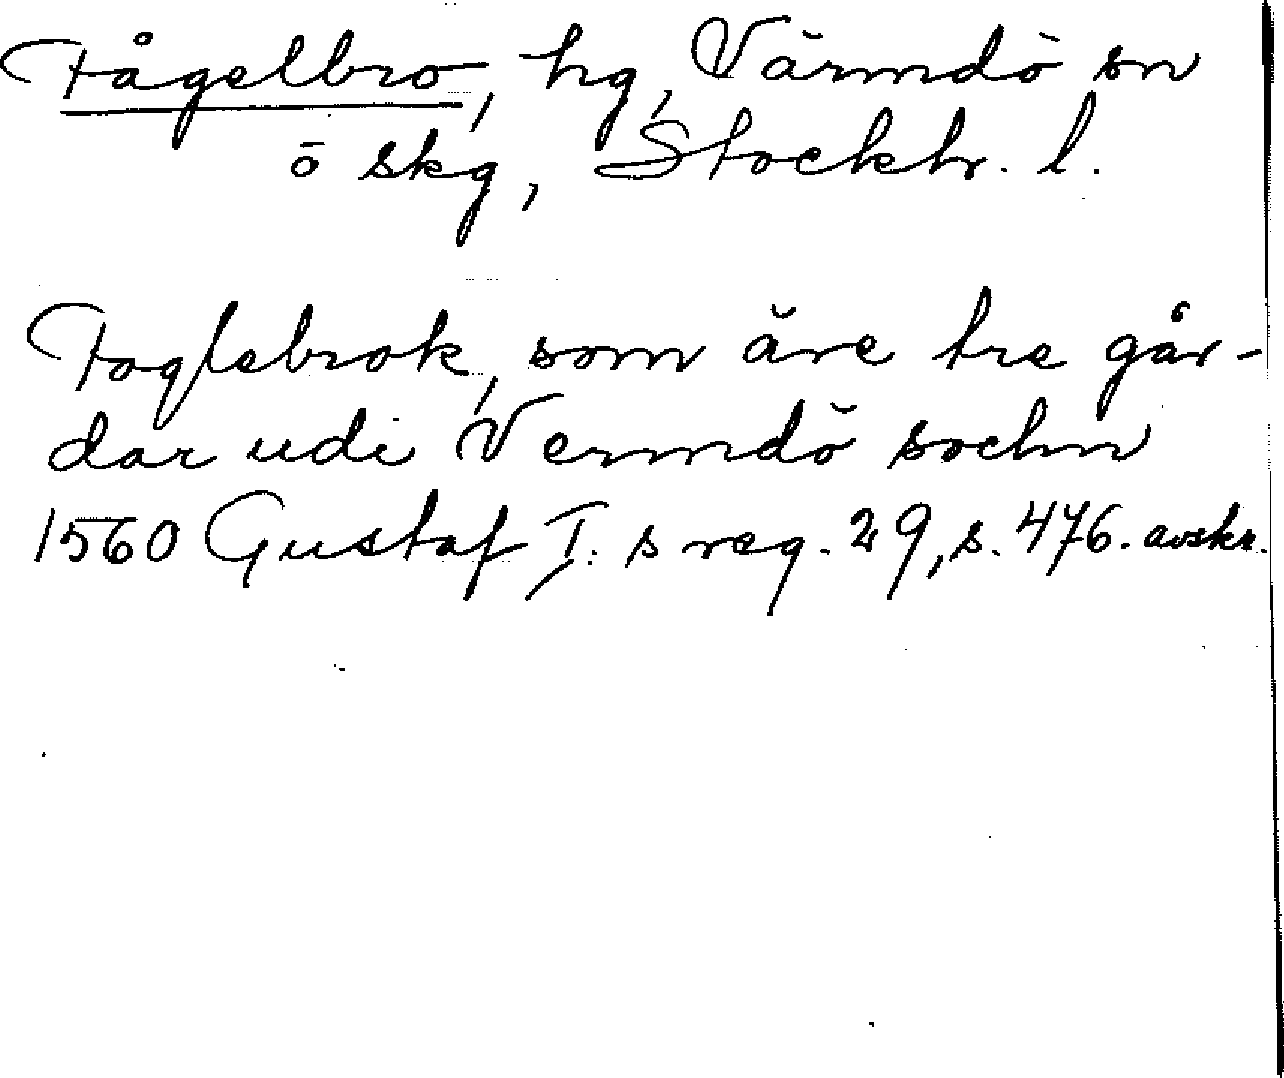 Fågelbro, hg, Värmdö sn
ö skg, Stockh. l.
Foglebrok, som äre tre går-
dar udi Vermdö sochn
1560 Gustaf I:s reg. 29, s. 476. avskr.